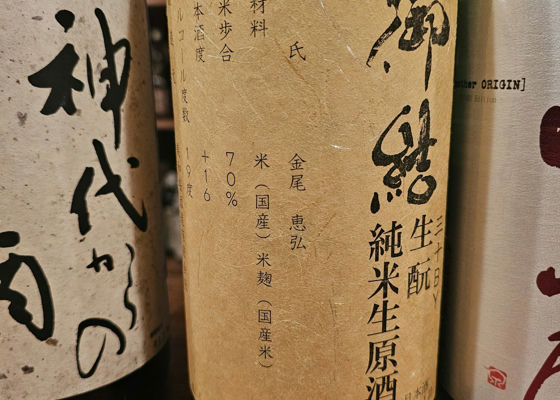 other ORIGIN]
御結
三十BY
生酛
純米生原酒
氏 金尾 恵弘
材料 米(国産)米麹(国産米)
米歩合 70%
本酒度 +16
ルコール度数 19度
神代からの
酒